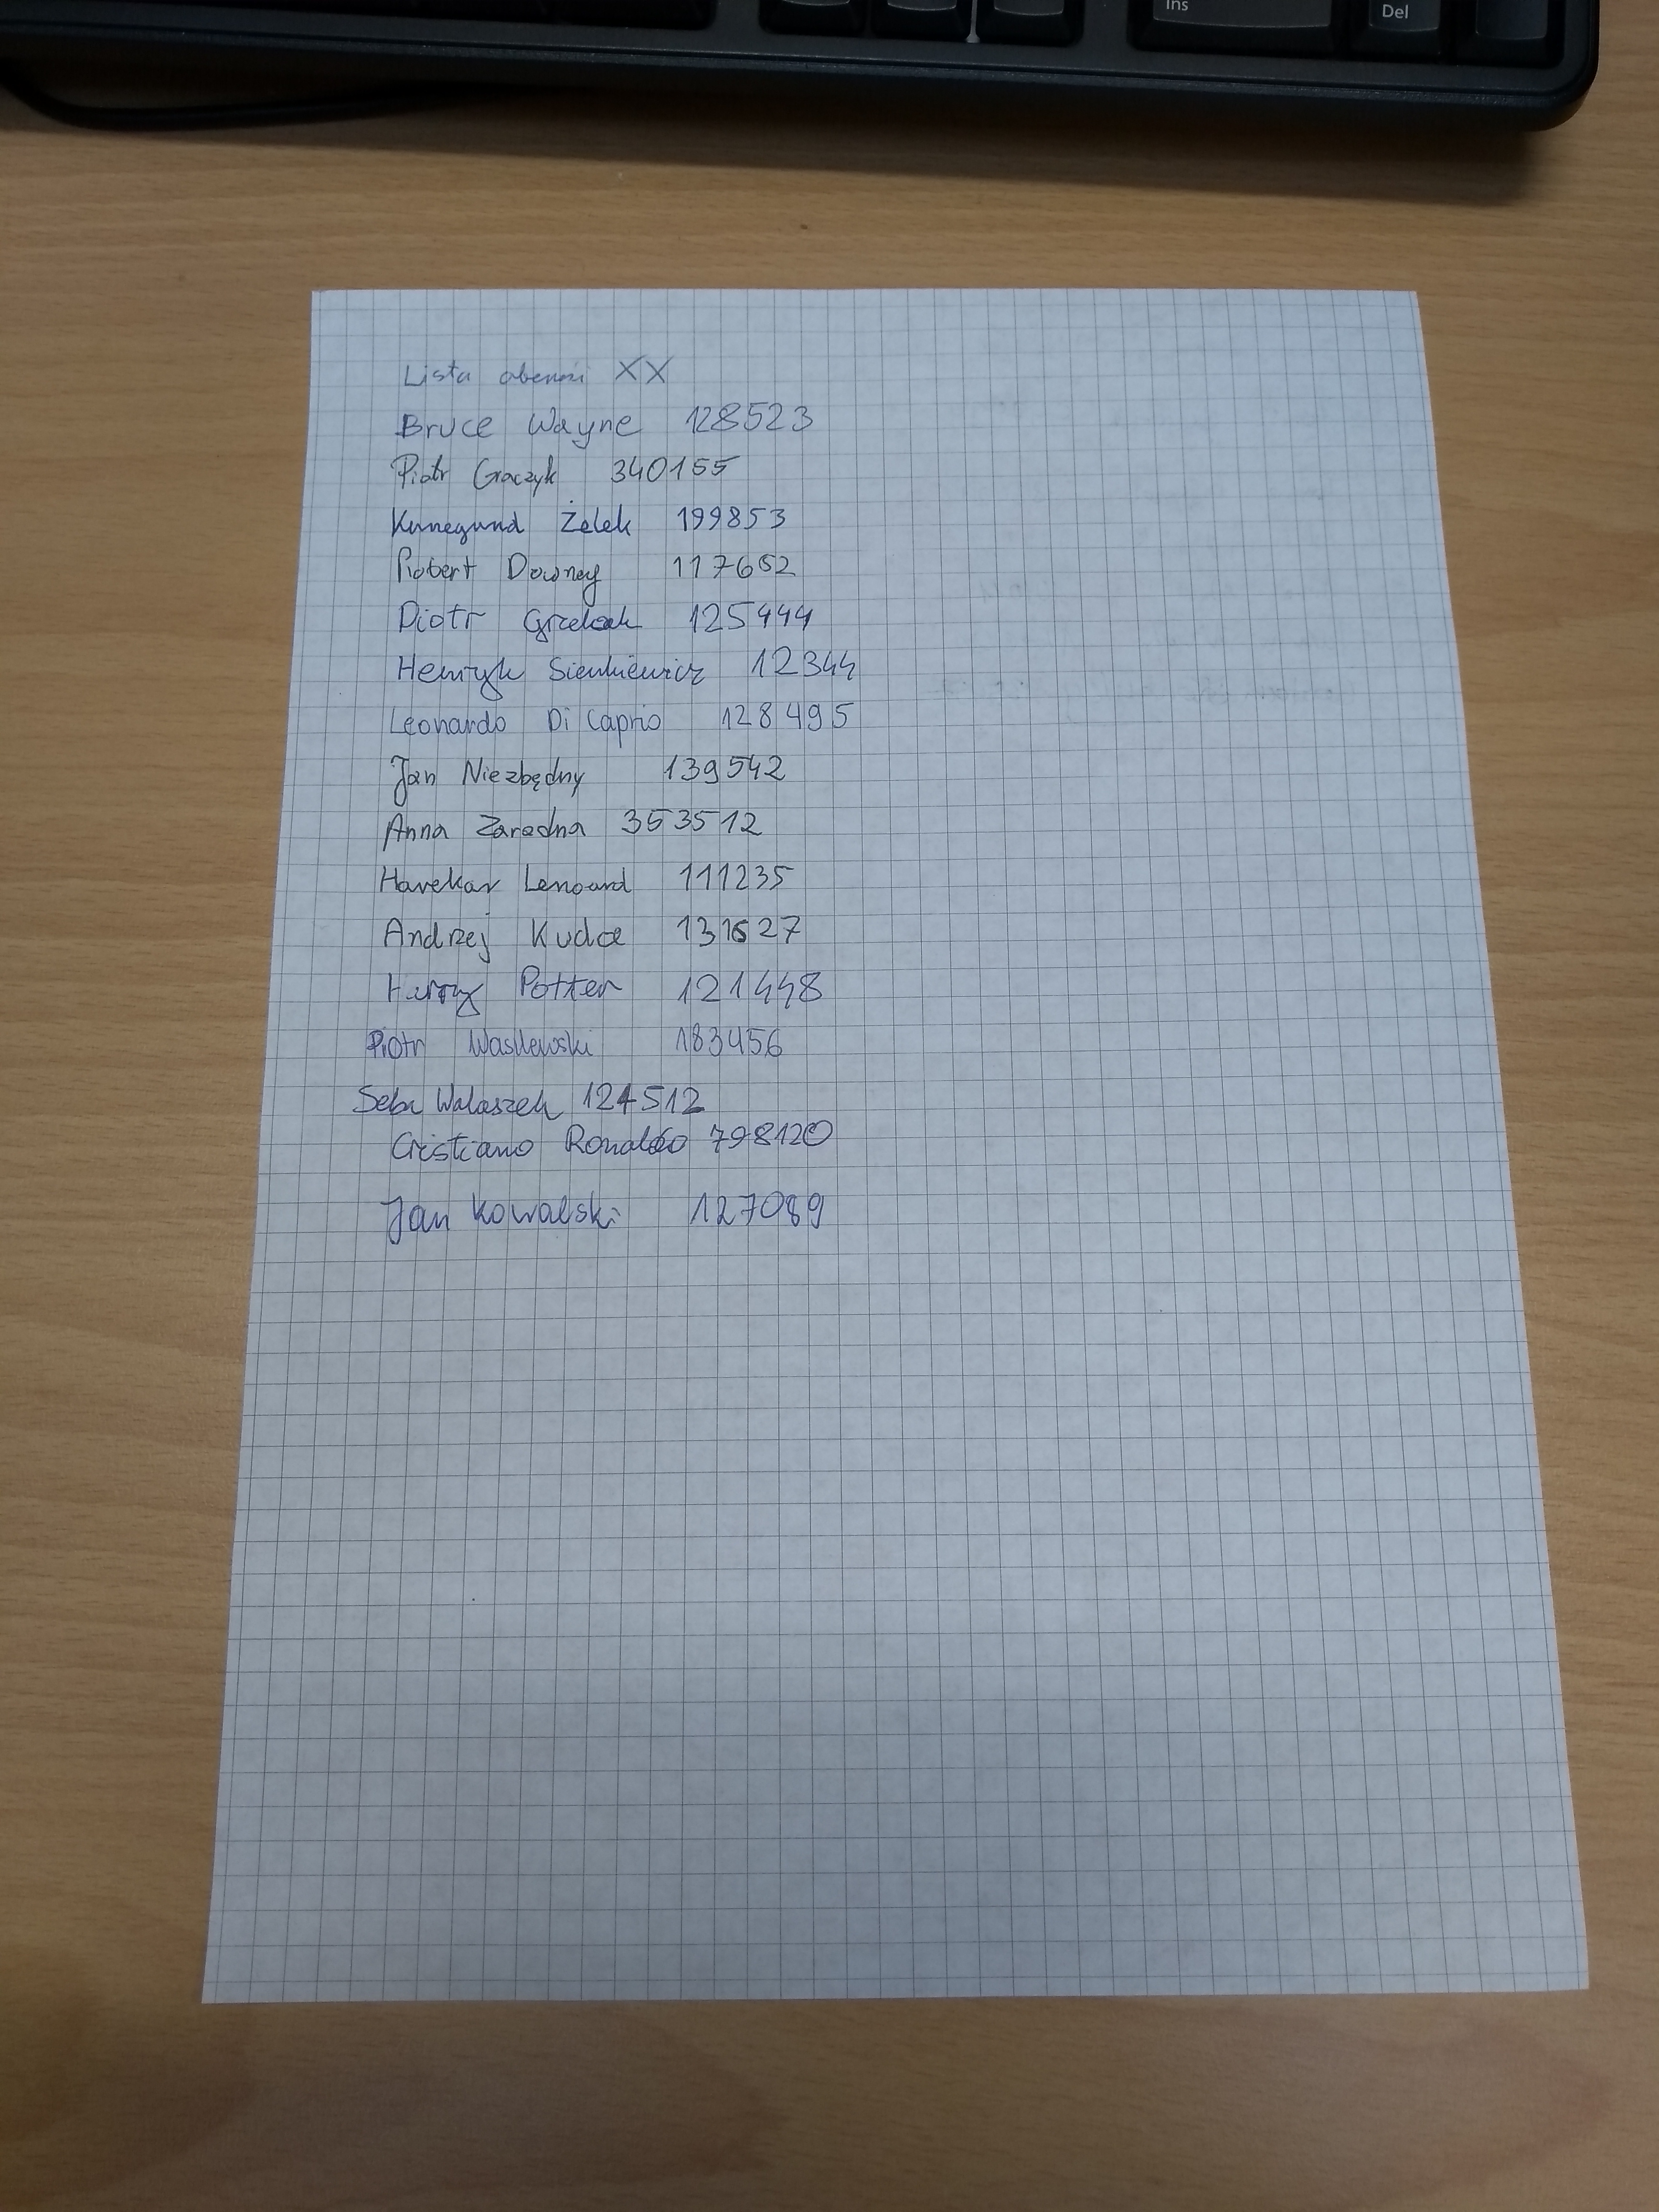 Ins
Del
Lista obecności XX
Bruce Wayne 128523
Piotr Graczyk 340155
Kunegund Żelek 199853
Robert Downey 117652
Piotr Grzelak 125444
Henryk Sienkiewicz 12344
Leonardo Di Caprio 128495
Jan Niezbędny 139542
Anna Zaradna 353512
Havekar Lenoard 111235
Andrzej Kudła 131627
Harry Potter 121448
Piotr Wasilewski 183456
Seba Walaszek 124512
Cristiano Ronaldo 798120
Jan Kowalski 127089